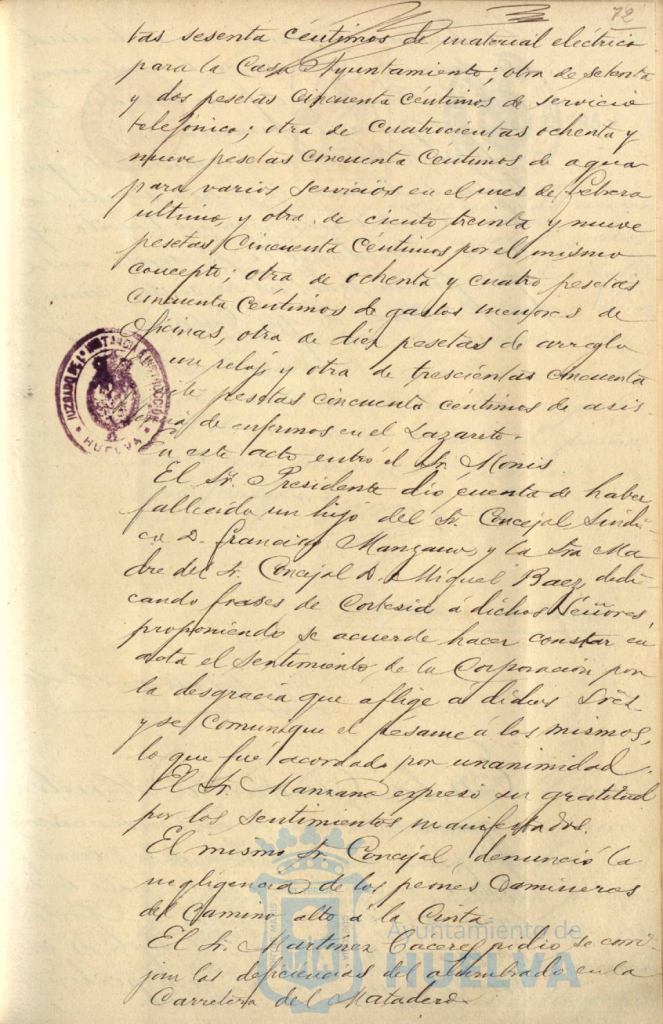 72
tas sesenta céntimos de material eléctrico
para la Casa Ayuntamiento; otra de setenta
y dos pesetas cincuenta céntimos de servicio
telefónico; otra de cuatrocientas ochenta y
nueve pesetas cincuenta céntimos de agua
para varios servicios en el mes de Febrero
último, y otra de ciento treinta y nueve
pesetas cincuenta céntimos por el mismo
concepto; otra de ochenta y cuatro pesetas
cincuenta céntimos de gastos menores de
oficinas, otra de diez pesetas de arreglo
un reloj y otra de trescientas cincuenta
pesetas cincuenta céntimos de asis
de enfermos en el Lazareto.
En este acto entró el Sr. Monis
El Sr. Presidente dio cuenta de haber
fallecido un hijo del Sr. Concejal Síndi
co D. Francisco Manzano, y la Sra Ma
dre del Sr. Concejal D. Miguel Baez, dedi
cando frases de cortesia á dichos Señores,
proponiendo se acuerde hacer constar en
acta el sentimiento de la Corporación por
la desgracia que aflige á dichos Sres
y se comunique el pésame á los mismos,
lo que fué acordado por unanimidad.
El Sr. Manzano expresó su gratitud
por los sentimientos manifestados.
El mismo Sr. Concejal, denunció la
negligencia de los peones Camineros
del Camino alto á la Cinta
El Sr. Martínez Caceres pidio se corri
jan las deficiencias del alumbrado en la
Carretera del Matadero
HUELVA
Ayuntamiento de
HUELVA